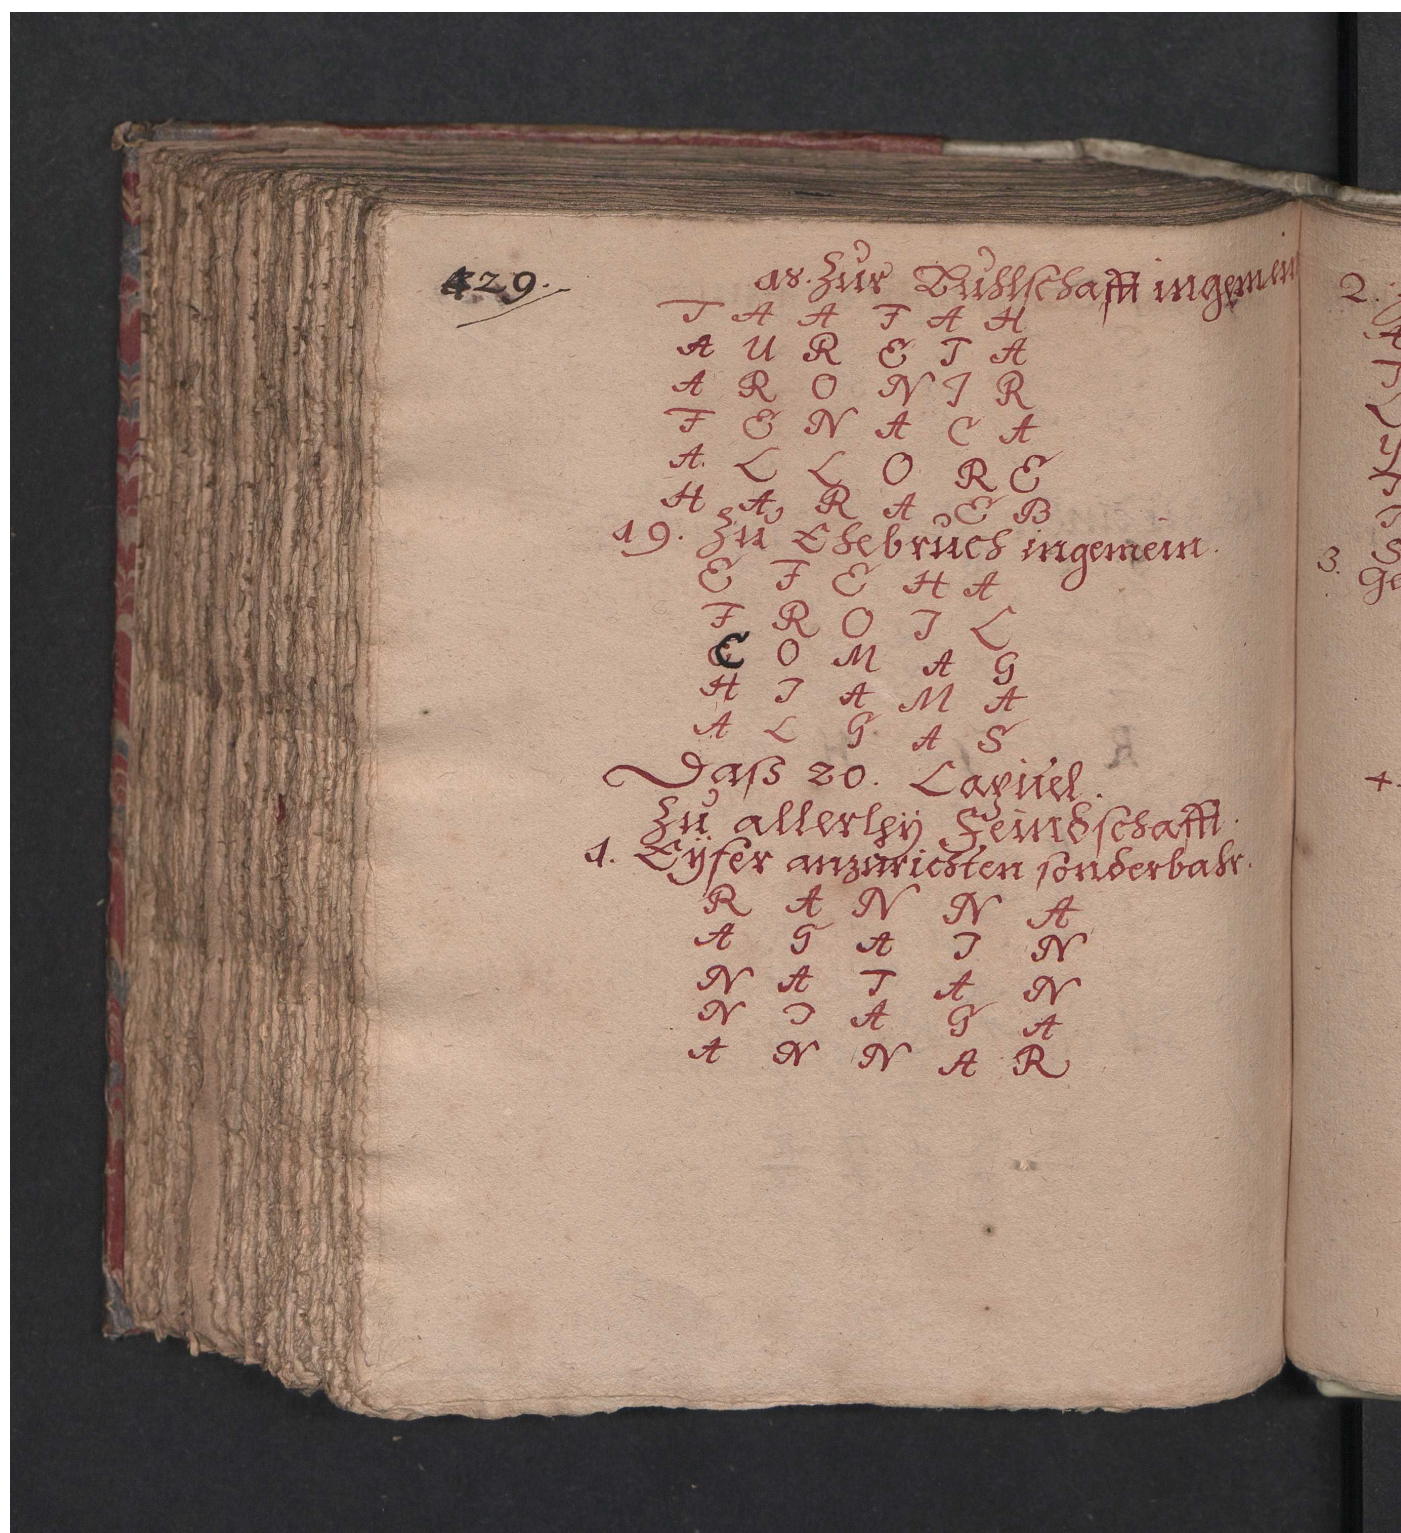 429.
18. Zur Buhlschafft ingemein
T A A F A H
A U R E T A
A R O N I R
F E N A C A
A. L L O R E
H A R A E B
19. Zu Ehebruch ingemein.
E F E H A
F R O I L
C O M A G
H I A M A
A L G A S
Daß 20. Capitel.
Zu allerleÿ Feindschafft.
1. Eÿfer anzurichten sonderbahr.
R A N N A
A G A I N
N A T A N
N I A G A
A N N A R
2.
3.
4.